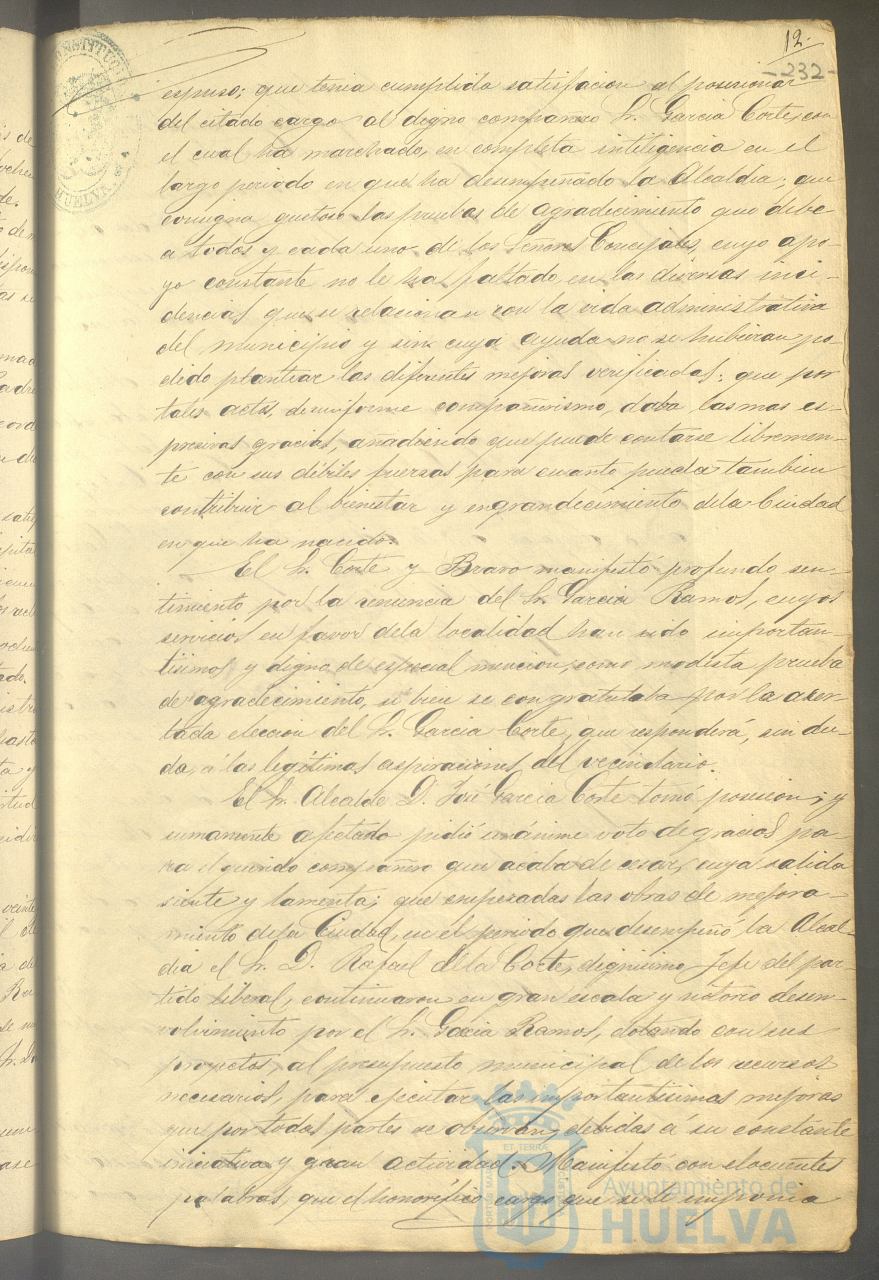 12.
-232-
espuso; que tenia cumplida satisfacion al posesionar
del citado cargo al digno compañero Sr. Garcia Corte, con
el cual ha marchado, en completa inteligencia en el
largo periodo en que ha desempeñado la Alcaldia; que
consigna gustoso las pruebas de agradecimiento que debe
a todos y cada uno de los Señores Concejales, cuyo apo-
yo constante no le ha faltado, en las diversas inci-
dencias que se relacionan con la vida administrativa
del municipio y sin cuya ayuda no se hubieran po-
dido plantear las diferentes mejoras verificadas; que por
tales actos, de uniforme compañerismo, daba las mas es-
presivas gracias, añadiendo que puede contarse libremen-
te con sus débiles fuerzas para cuanto pueda tambien
contribuir al bienestar y engrandecimiento dela Ciudad
en que ha nacido.
El Sr. Corte y Bravo manifestó profundo sen-
timiento por la renuncia del Sr. Garcia Ramos, cuyos
servicios en favor dela localidad han sido importan-
tisimos y digno de especial mencion, como modesta prueba
de agradecimiento, si bien se congratulaba por la acer-
tada eleccion del Sr. Garcia Corte, que responderá, sin du-
da, á las legítimas aspiraciones del vecindario.
El Sr. Alcalde D. José Garcia Corte tomó posesion; y
sumamente afectado pidió unánime voto de gracias pa-
ra el querido compañero que acaba de cesar, cuya salida
siente y lamenta; que empezadas las obras de mejora-
miento de la Ciudad, en el periodo que desempeñó la Alcal-
dia el Sr. D. Rafael dela Corte, dignisimo Jefe del par-
tido liberal, continuaron en gran escala y notorio desen-
volvimiento por el Sr. Garcia Ramos, dotando con sus
proyectos, al presupuesto municipal de los recursos
necesarios, para ejecutar las importantisimas mejoras
que por todas partes se observan, debidas á su constante
iniciativa y gran actividad. Manifestó con elocuentes
palabras, que el honorífico cargo que se le imponia
Ayuntamiento de
HUELVA